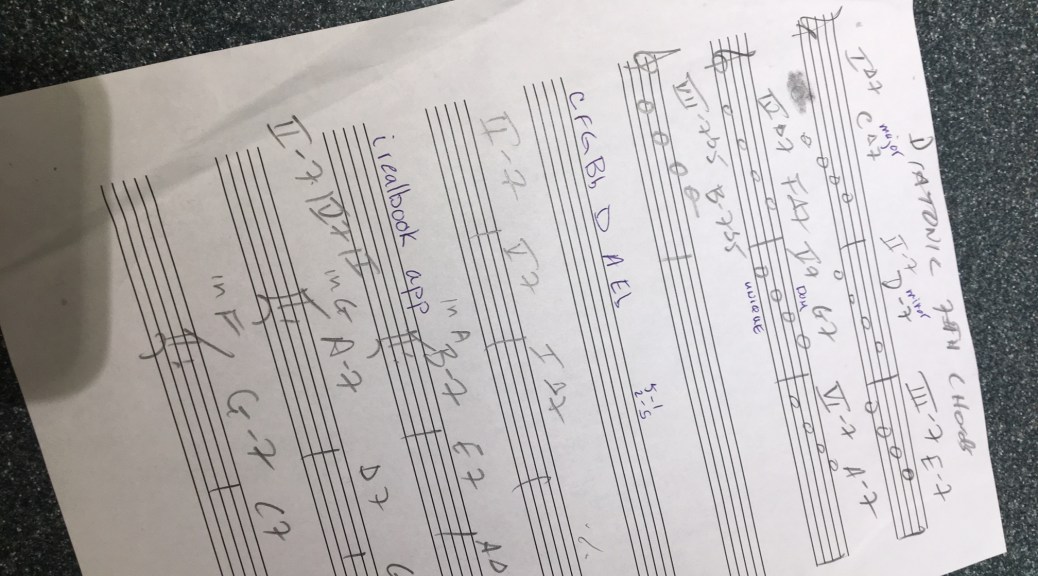 DIATONIC 7TH CHORDS
major minor
IΔ7 CΔ7 II-7 D-7 III-7 E-7
DOM
IVΔ7 FΔ7 V7 G7 VI-7 A-7
UNIQUE
VII-7b5 B-7b5
5-1
2-5
C F G Bb D A Eb
II-7 V7 IΔ7 ٪
in A B-7 E7 AΔ
irealbook app
II-7 | V7 | I in G A-7 D7 G
in F G-7 C7